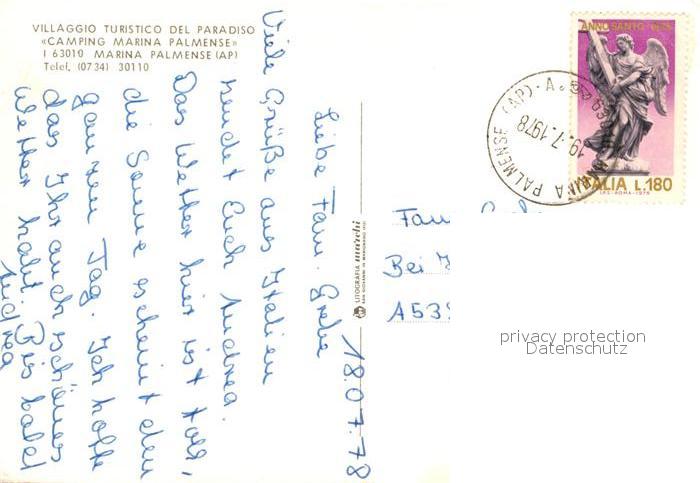 VILLAGGIO TURISTICO DEL PARADISO
«CAMPING MARINA PALMENSE»
I 63010 MARINA PALMENSE (AP)
Telef. (0734) 30110
18.07.78
Liebe Fam.
Viele Grüße aus Italien
sendet Euch Andrea.
Das Wetter hier ist toll,
die Sonne scheint den
ganzen Tag. Ich hoffe
das Ihr auch schönes
Wetter habt. Bis bald
Andrea
LITOGRAFIA
ANNO SANTO 1975
ITALIA L.180
I.P.S.-ROMA-1975
MARINA PALMENSE (AP)
19.7.1978
Fam
Bei
privacy protection
Datenschutz